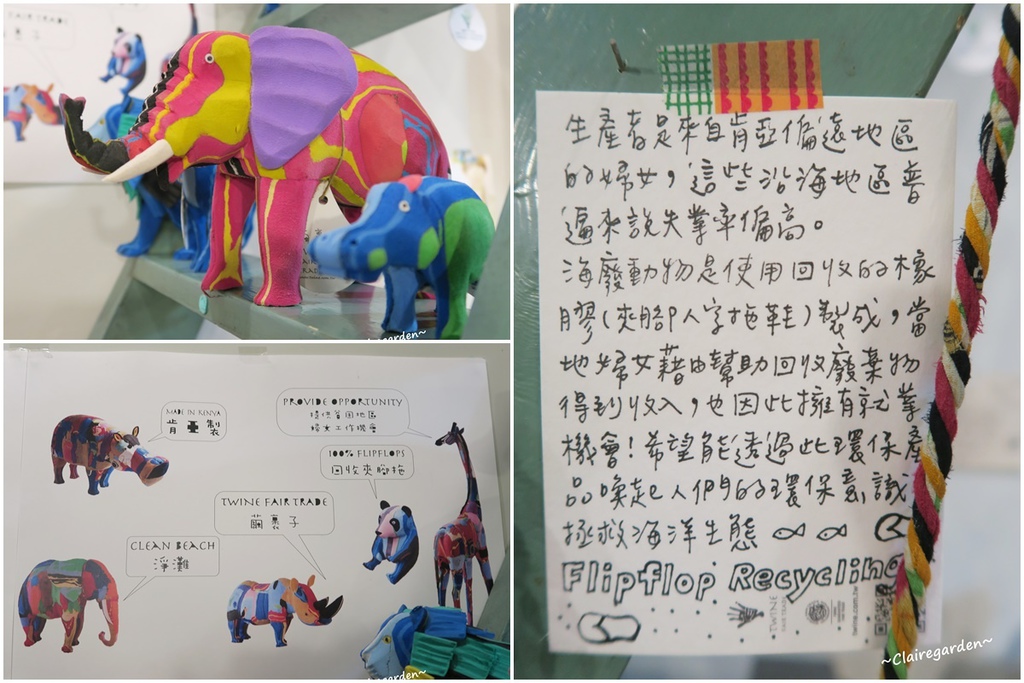 FAIR TRADE
Clairegarden~
MADE IN KENYA
肯亞製
PROVIDE OPPORTUNITY
提供貧困地區
婦女工作機會
100% FLIPFLOPS
回收夾腳拖
TWINE FAIR TRADE
繭裹子
CLEAN BEACH
淨灘
Clairegarden~
生產者是來自肯亞偏遠地區
的婦女，這些沿海地區普
遍來說失業率偏高。
海廢動物是使用回收的橡
膠(夾腳人字拖鞋)製成，當
地婦女藉由幫助回收廢棄物
得到收入，也因此擁有就業
機會！希望能透過此環保產
品喚起人們的環保意識
拯救海洋生態
Flipflop Recycling
TWINE
FAIR TRADE
~Clairegarden~